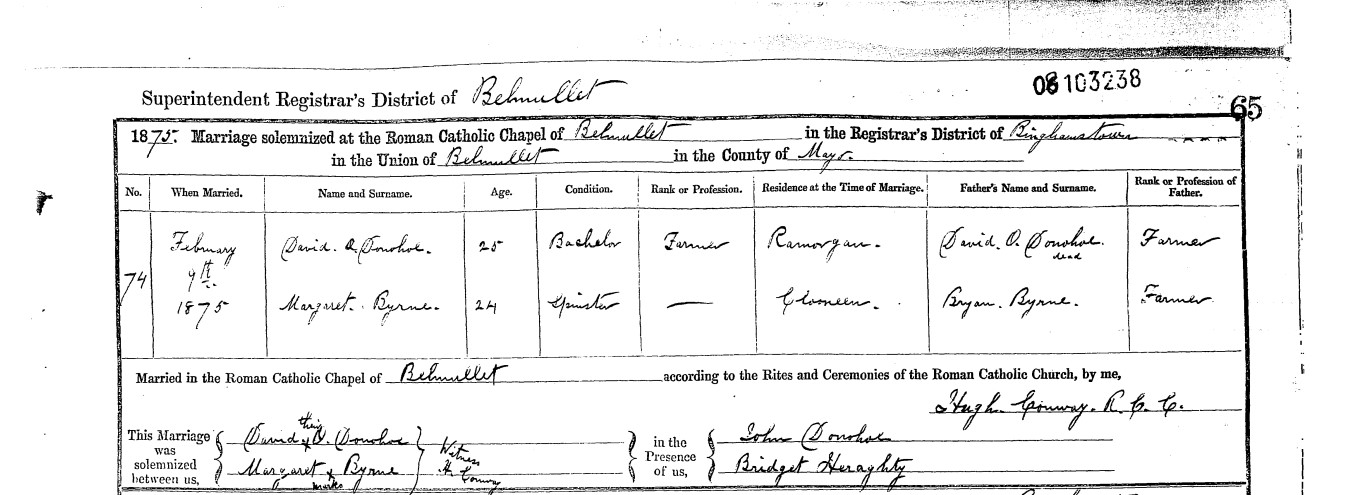 06103238
Superintendent Registrar's District of Belmullet
65
1875. Marriage solemnized at the Roman Catholic Chapel of Belmullet in the Registrar's District of Binghamstown
in the Union of Belmullet in the County of Mayo.
No. When Married. Name and Surname. Age. Condition. Rank or Profession. Residence at the Time of Marriage. Father's Name and Surname. Rank or Profession of Father.
February David. O. Donohoe. 25 Bachelor Farmer Ramorgan. David. O. Donohoe. Farmer
dead
74 9th.
1875 Margaret. Byrne. 24 Spinster — Clooneen. Bryan. Byrne. Farmer
Married in the Roman Catholic Chapel of Belmullet according to the Rites and Ceremonies of the Roman Catholic Church, by me,
Hugh. Conway. R. C. C.
This Marriage was solemnized between us,
their
David x O. Donohoe
Margaret x Byrne
marks
Witness
H. Conway
in the Presence of us,
John Donohoe
Bridget Heraghty